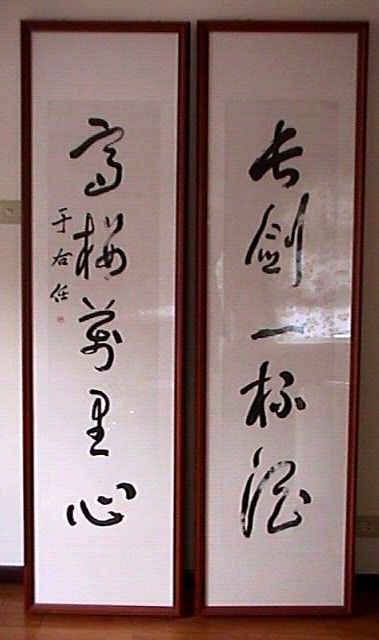 長劍一杯酒
高樓萬里心
于右任